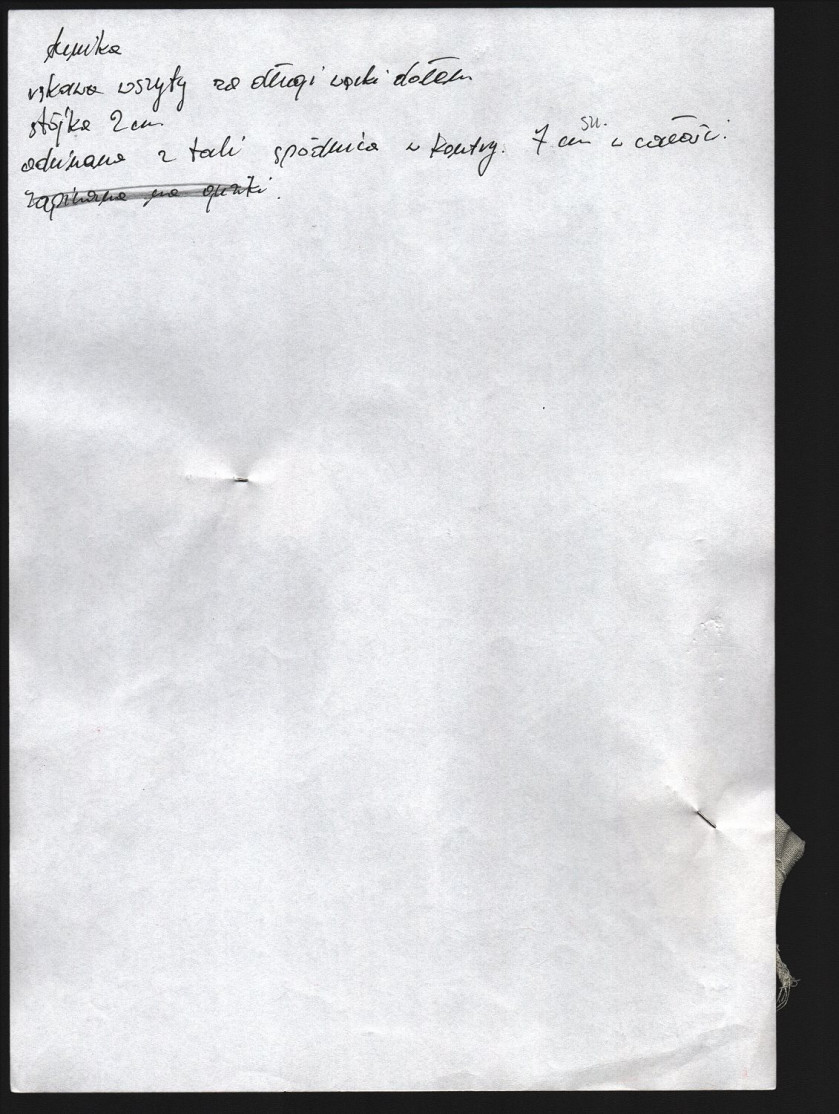 tunika
rękawa wszyty za długi wąski dołem
stójka 2 cm.
odcinana z tali spódnica w kontry. 7 cm sw. w całości.
zapinana na guziki.